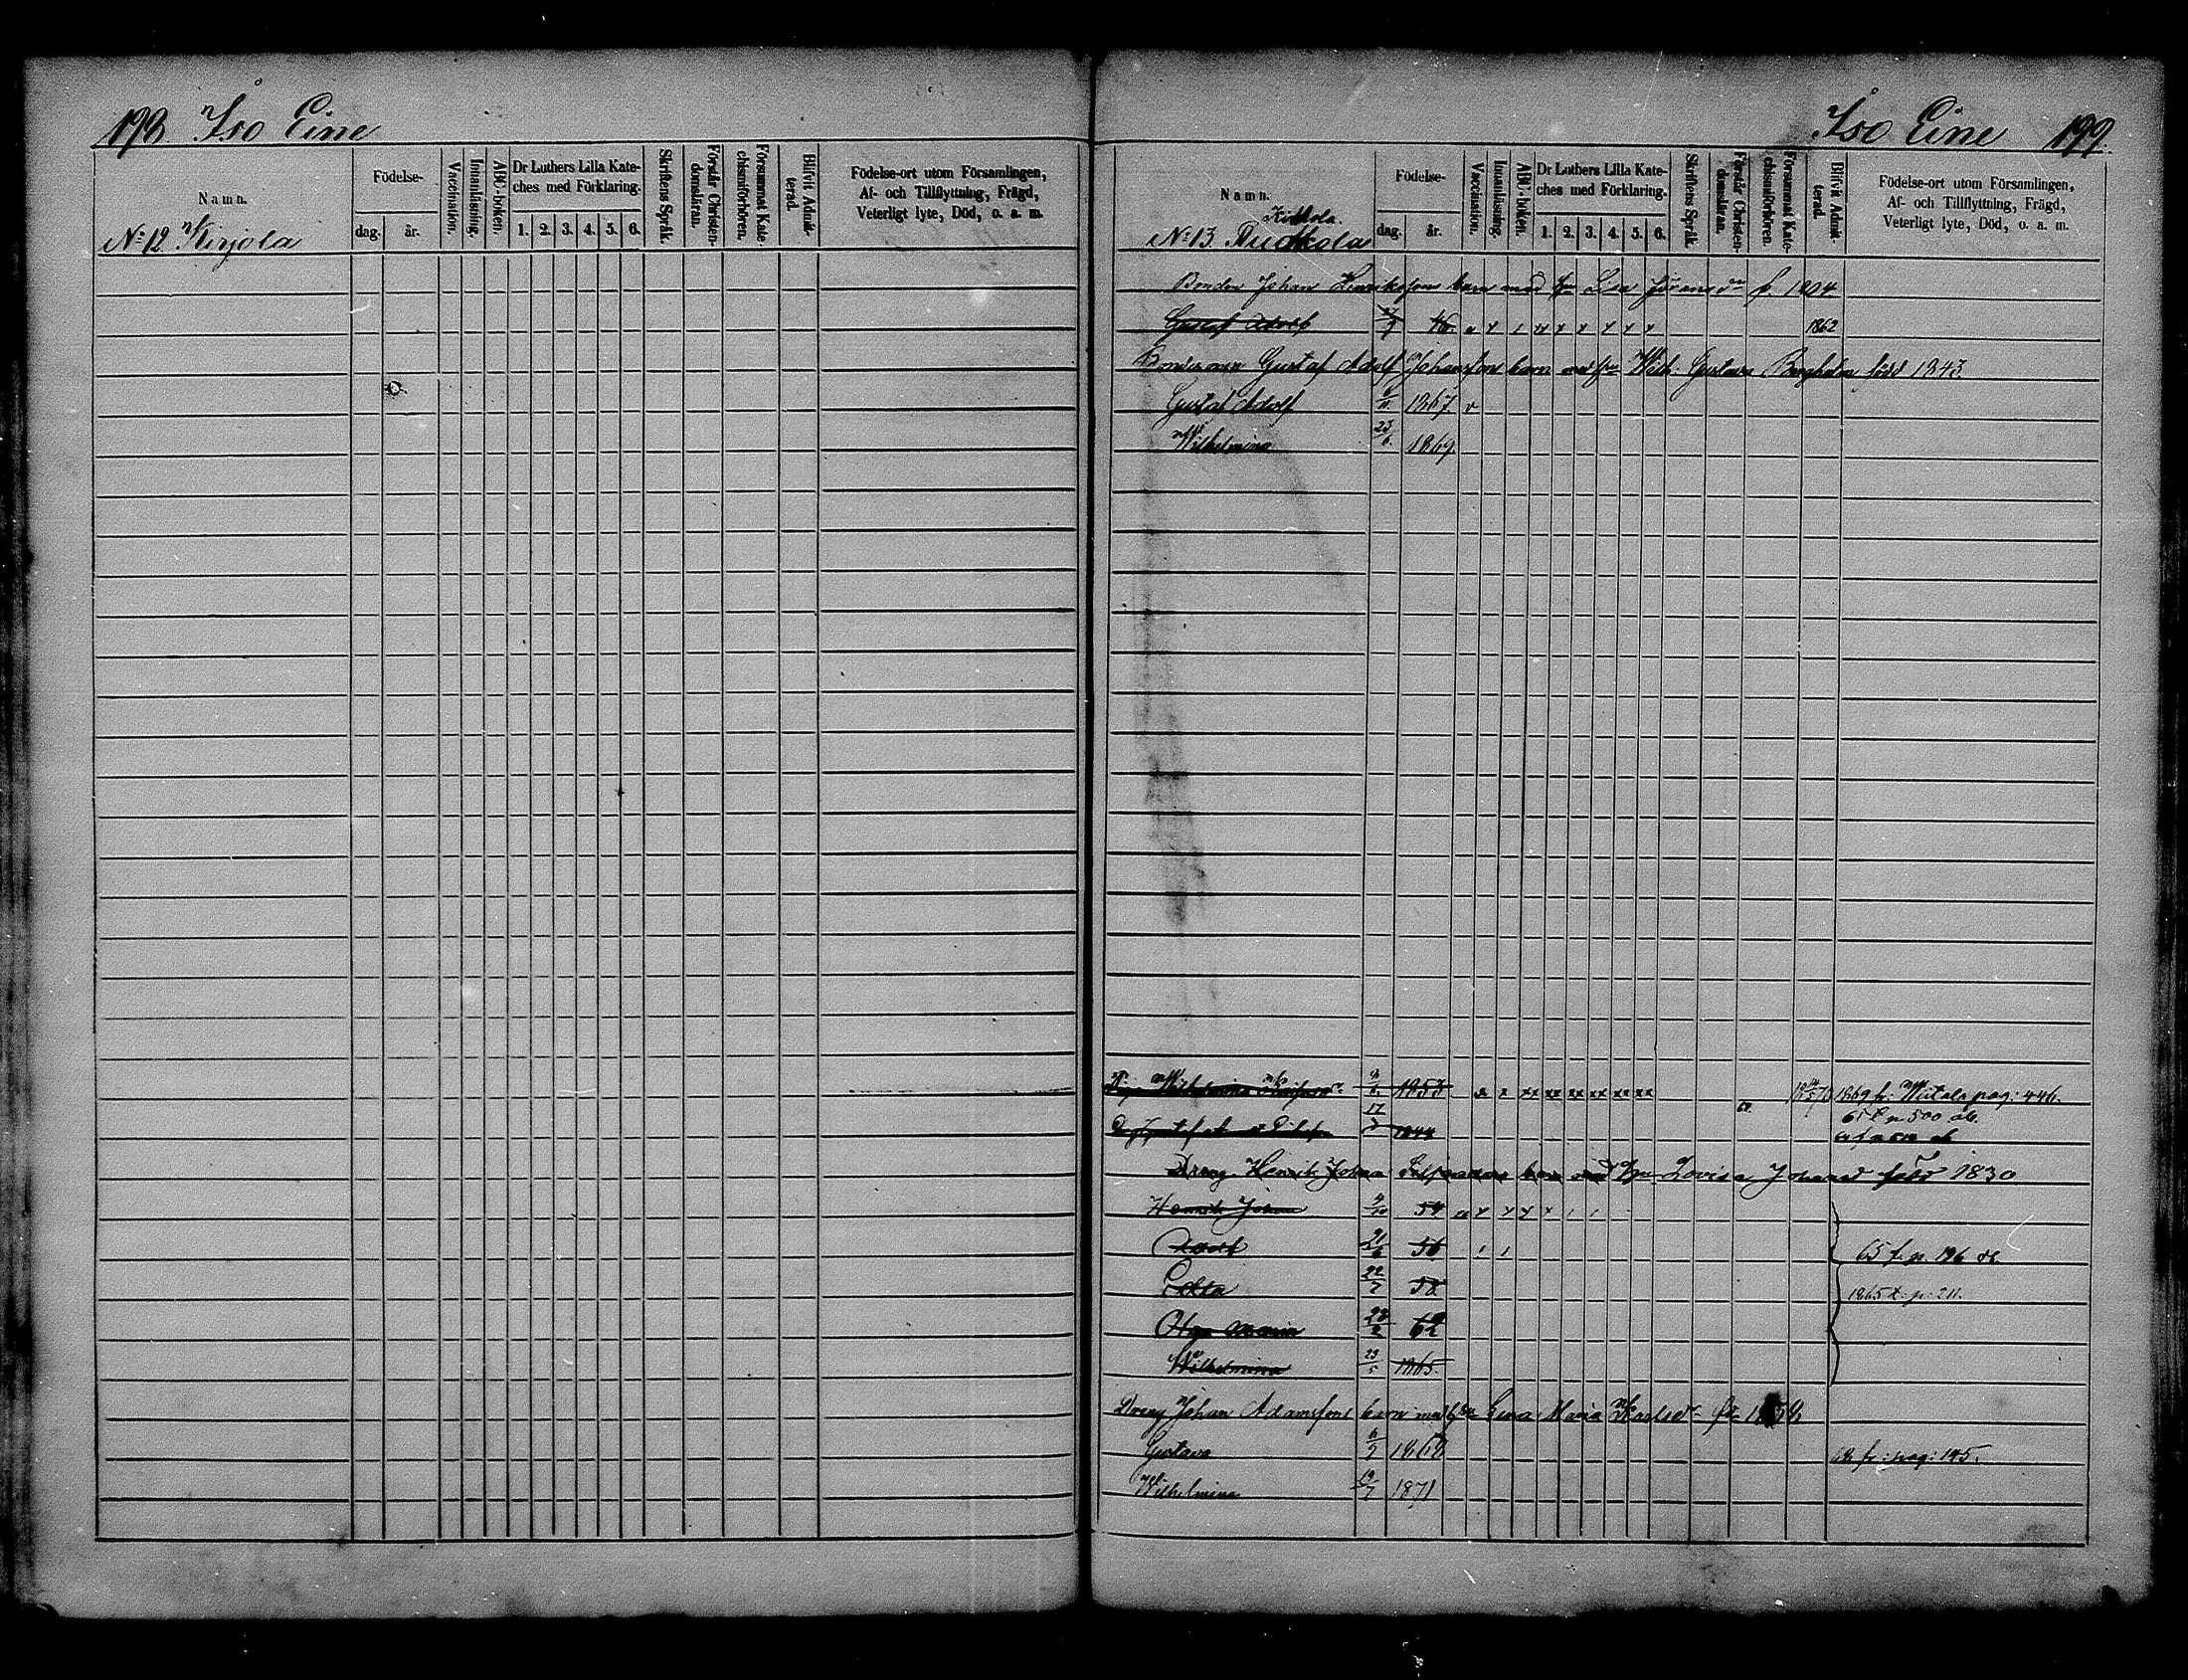 198. Iso Eine
Namn.
Födelse-
dag.
år.
Vaccination.
Innanläsning.
ABC-boken.
Dr Luthers Lilla Kate-
ches med Förklaring.
1. 2. 3. 4. 5. 6.
Skriftens Språk.
Förstår Christen-
domsläran.
Försummat Kate-
chismiförhören.
Blifvit Admit-
terad.
Födelse-ort utom Församlingen,
Af- och Tillflyttning, Frägd,
Veterligt lyte, Död, o. a. m.
No 12 Kirjola
Iso Eine 199.
Namn.
Födelse-
dag.
år.
Vaccination.
Innanläsning.
ABC-boken.
Dr Luthers Lilla Kate-
ches med Förklaring.
1. 2. 3. 4. 5. 6.
Skriftens Språk.
Förstår Christen-
domsläran.
Försummat Kate-
chismiförhören.
Blifvit Admit-
terad.
Födelse-ort utom Församlingen,
Af- och Tillflyttning, Frägd,
Veterligt lyte, Död, o. a. m.
No 13
Bonden Johan Henrikssons barn med Lisa f. 1804
Gustaf Adolf 46. 1862
Bondesonen Gustaf Adolf Johanssons barn med hu Wilh. Gustava Bergholm född 1843.
Gustaf Adolf 1867 v
Wilhelmina 23/6. 1869.
Wilhelmina 1853 1869 fr. Wiitala pag: 446.
17 1844 65 f. p 500
Dreng Henrik Johan barn med hu Lovisa född 1830
Henrik Johan 54
Adolf 21/6 56 65 f. p. 196
22/7 58 1865 t. p. 211.
Olga Maria 62
Wilhelmina 23/5 1865.
Dreng Johan Adamssons barn med hu Maria Karlsd
Gustava 6/9 1868 68 fr: pag: 145.
Wilhelmina 19/7 1871